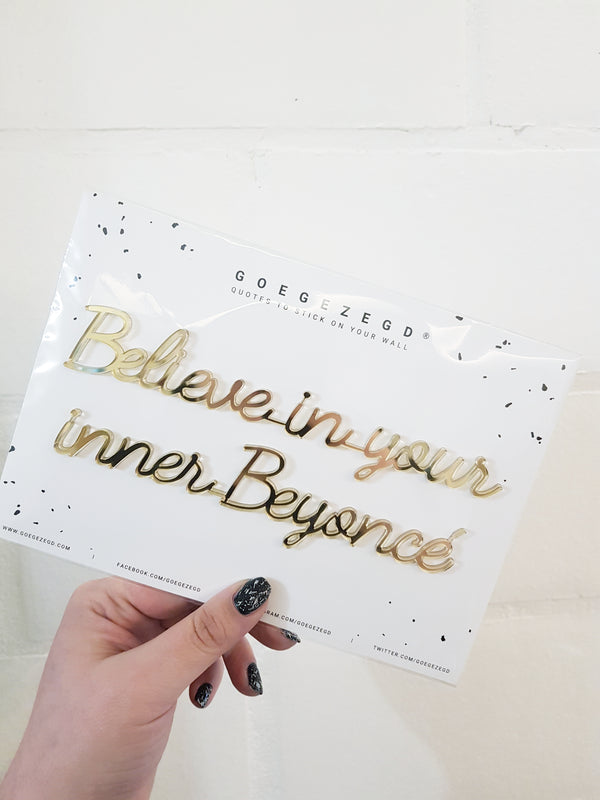 GOEGEZEGD®
QUOTES TO STICK ON YOUR WALL
Believe in your
inner Beyoncé
WWW.GOEGEZEGD.COM | FACEBOOK.COM/GOEGEZEGD RAM.COM/GOEGEZEGD | TWITTER.COM/GOEGEZEGD